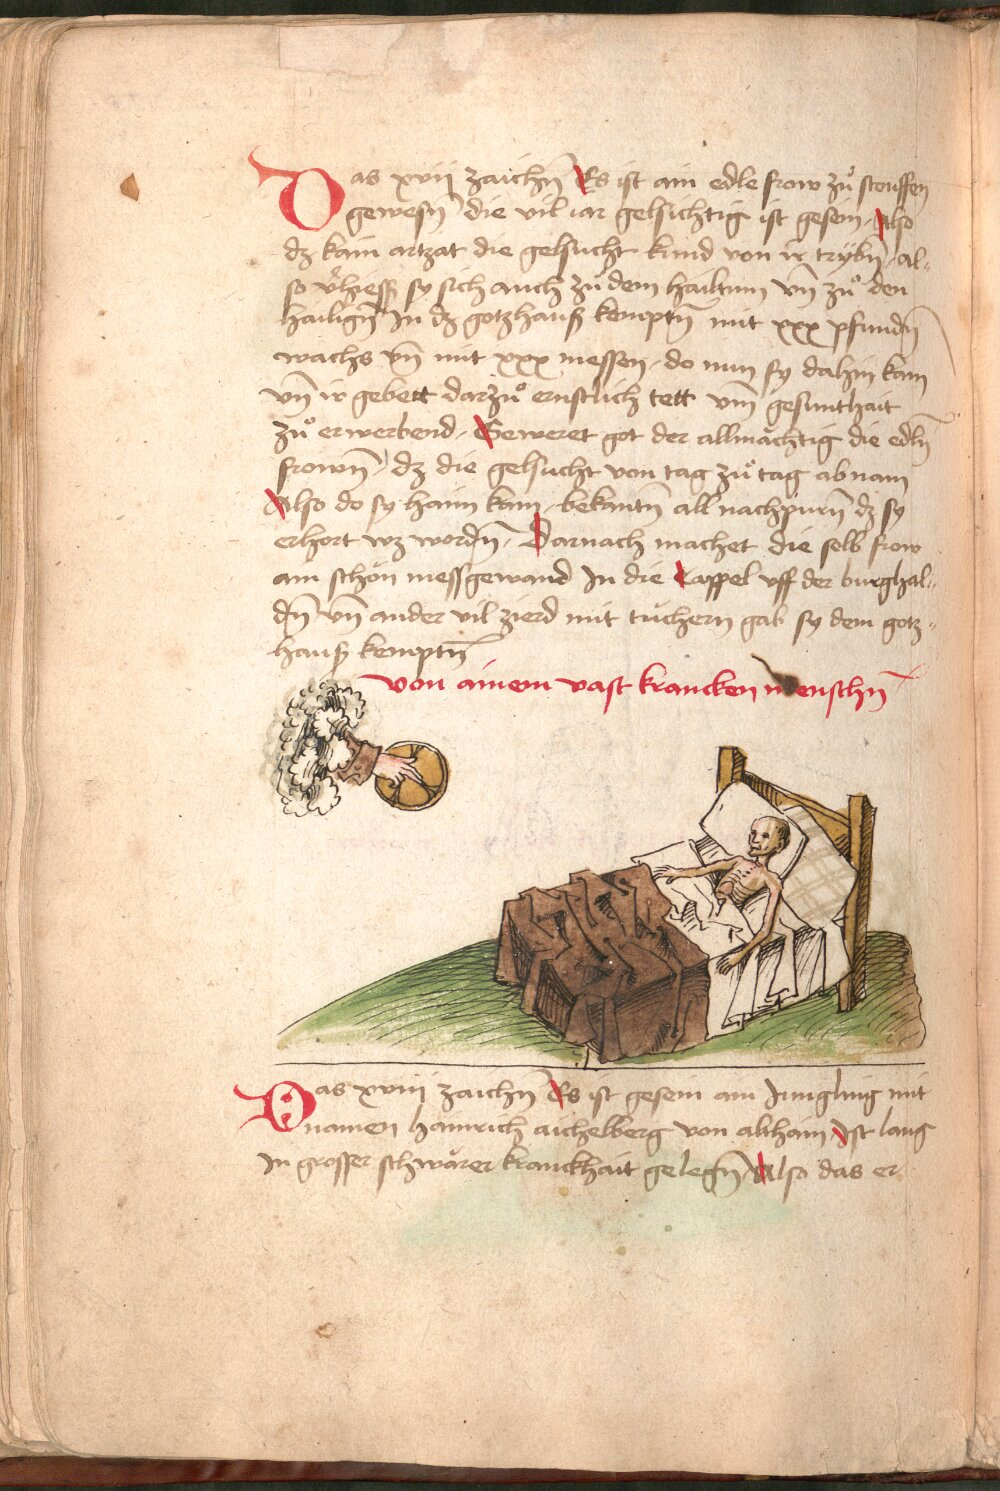 Das xvij zaichn̄ Es ist ain edle frow zuͦ stouffen
gewesn̄ die vil iar gelsichtig ist gesein, Also
dz kain artzat die gelsucht kund von ir trybn̄, al-
so v̓hiess sy sich auch zuͦ dem hailtum vn̄ zuͦ den
hailign̄ In dz gotzhauß kemptn̄ mit xxx pfundn̄
wachs vn̄ mit xxx messen, do nun sy dahin kam
vn̄ ir gebett darzuͦ ernstlich tett vm̄ gesunthait
zuͦ erwerbend, Geweret got der allmächtig die edln̄
frown̄, dz die gelsucht von tag zuͦ tag abnam
Also do sy haim kam, bekantn̄ all nachpurn̄ dz sy
erhort wz wordn̄, Darnach machet die selb frow
ain schön messgewand In die cappel vff der burghal-
dn̄ vn̄ ander vil zierd mit tüchern gab sy dem gotz-
hauß kemptn̄
von ainem vast krancken menschn̄
Das xviij zaichn̄ Es ist gesein ain Jungling mit
namen hainrich aichelberg von althain Ist lang
In grosser schwärer kranckhait gelegn̄, Also das er